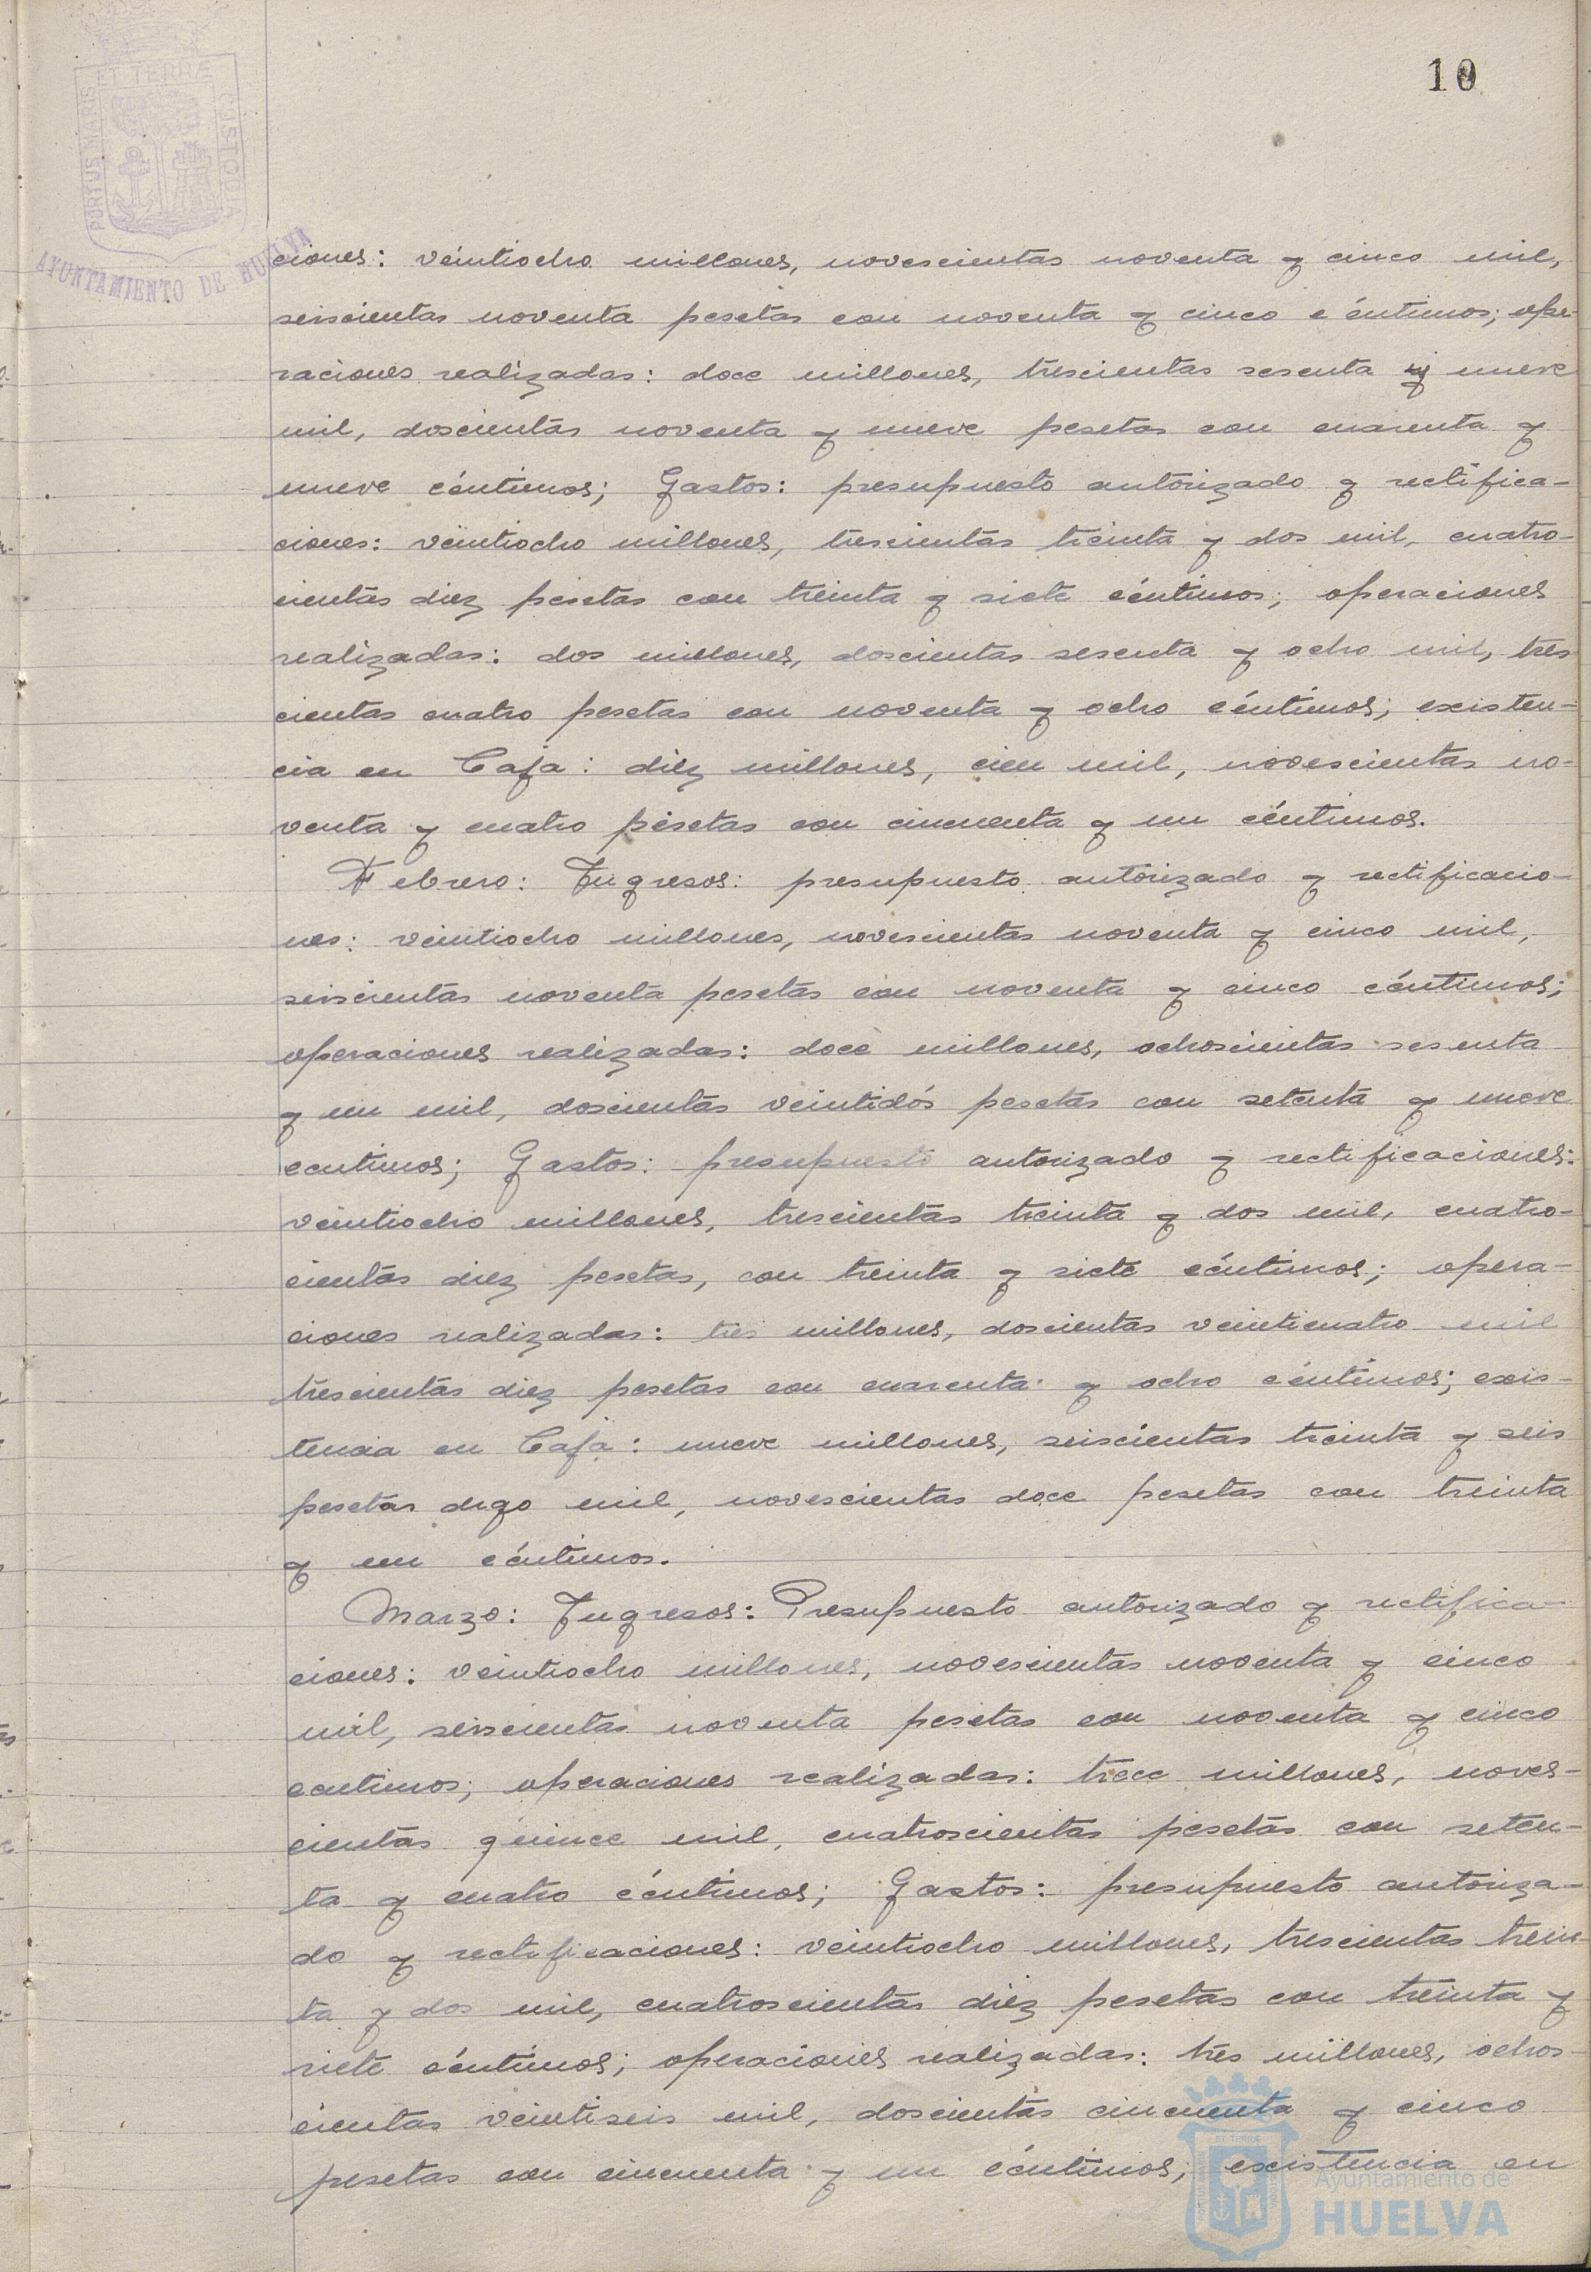 10
PORTUS MARIS ET TERRÆ CUSTODIA
AYUNTAMIENTO DE HUELVA
ciones: veintiocho millones, novescientas noventa y cinco mil,
seiscientas noventa pesetas con noventa y cinco céntimos; ope-
raciones realizadas: doce millones, trescientas sesenta y nueve
mil, doscientas noventa y nueve pesetas con cuarenta y
nueve céntimos; Gastos: presupuesto autorizado y rectifica-
ciones: veintiocho millones, trescientas treinta y dos mil, cuatro-
cientas diez pesetas con treinta y siete céntimos; operaciones
realizadas: dos millones, doscientas sesenta y ocho mil, tres
cientas cuatro pesetas con noventa y ocho céntimos; existen-
cia en Caja: diez millones, cien mil, novescientas no-
venta y cuatro pesetas con cincuenta y un céntimos.
Febrero: Ingresos: presupuesto autorizado y rectificacio-
nes: veintiocho millones, novescientas noventa y cinco mil,
seiscientas noventa pesetas con noventa y cinco céntimos;
operaciones realizadas: doce millones, ochoscientas sesenta
y un mil, doscientas veintidós pesetas con setenta y nueve
centimos; Gastos: presupuesto autorizado y rectificaciones:
veintiocho millones, trescientas treinta y dos mil, cuatro-
cientas diez pesetas, con treinta y siete céntimos; opera-
ciones realizadas: tres millones, doscientas veinticuatro mil
trescientas diez pesetas con cuarenta y ocho céntimos; exis-
tencia en Caja: nueve millones, seiscientas treinta y seis
pesetas digo mil, novescientas doce pesetas con treinta
y un céntimos.
Marzo: Ingresos: Presupuesto autorizado y rectifica-
ciones: veintiocho millones, novescientas noventa y cinco
mil, seiscientas noventa pesetas con noventa y cinco
centimos; operaciones realizadas: trece millones, noves-
cientas quince mil, cuatroscientas pesetas con seten-
ta y cuatro céntimos; Gastos: presupuesto autoriza-
do y rectificaciones: veintiocho millones, trescientas trein
ta y dos mil, cuatroscientas diez pesetas con treinta y
siete céntimos; operaciones realizadas: tres millones, ochos-
cientas veintiseis mil, doscientas cincuenta y cinco
pesetas con cincuenta y un céntimos; existencia en
Ayuntamiento de
HUELVA